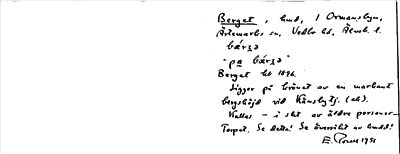 Berget, hmd, i Ormansbyn,
Ärtemarks sn, Vedbo hd, Älvsb. l.
bárʒə
"pa bárʒə
Berget hd 1896.
Ligger på krönet av en markant
bergshöjd vid Kånsbytj. (ek).
Kallas – i sht av äldre personer –
Torpet. Se detta! Se översikt av hmd!
E. 1931